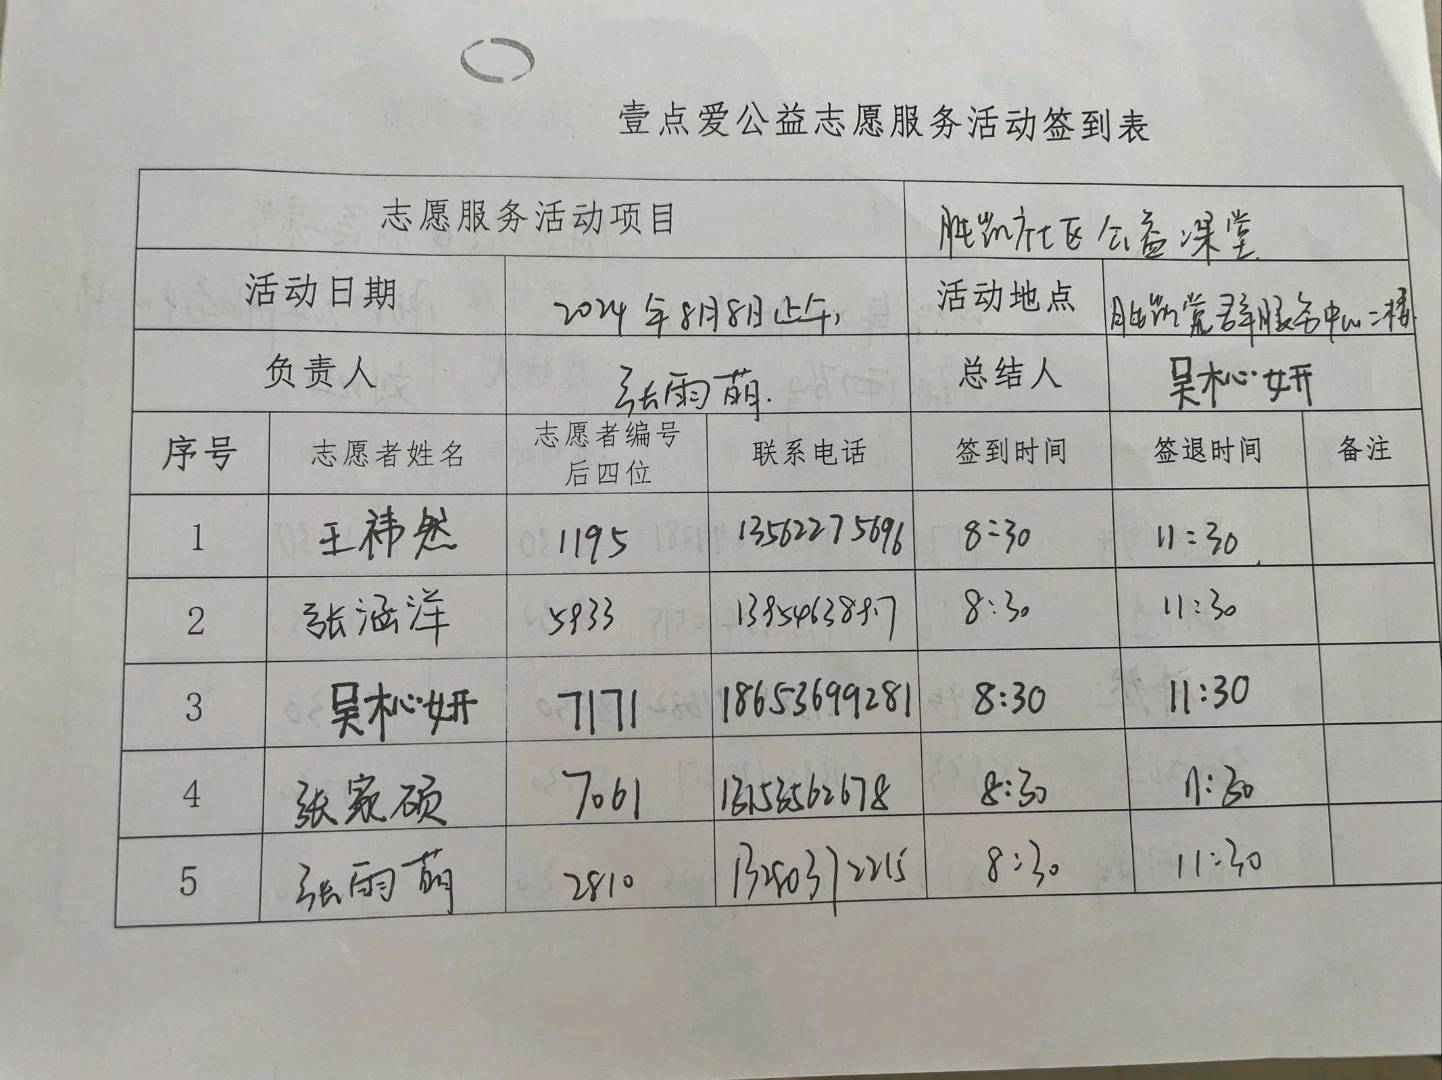 壹点爱公益志愿服务活动签到表
志愿服务活动项目 胜凯社区公益课堂
活动日期 2024年8月8日上午 活动地点 胜凯党群服务中心二楼
负责人 张雨萌 总结人 吴杺妍
序号 志愿者姓名 志愿者编号后四位 联系电话 签到时间 签退时间 备注
1 王祎然 1195 13562275696 8:30 11:30
2 张涵洋 5933 8:30 11:30
3 吴杺妍 7171 18653699281 8:30 11:30
4 张家硕 7061 13153562678 8:30 11:30
5 张雨萌 2810 13280372215 8:30 11:30